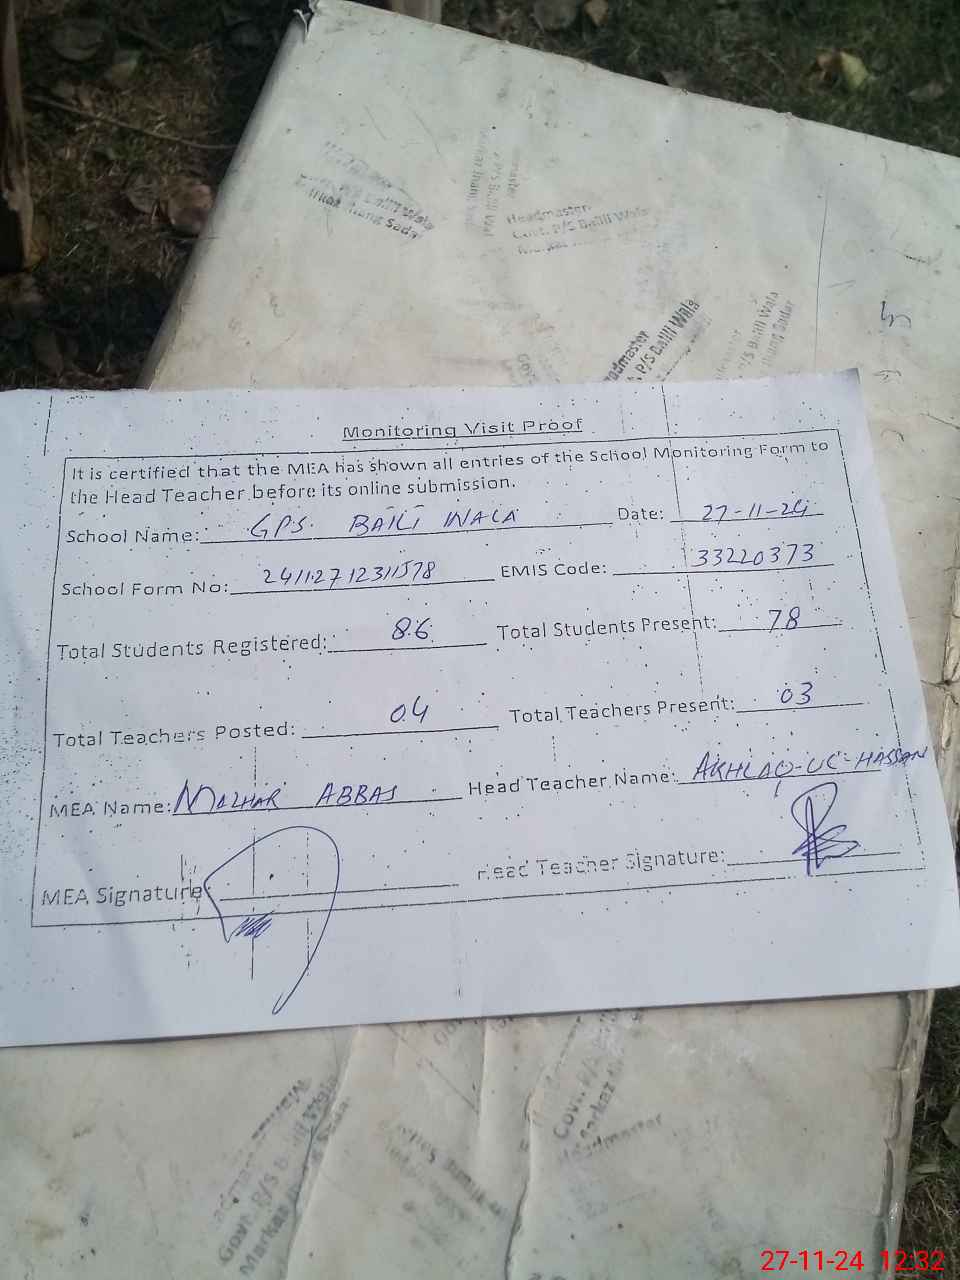 Headmaster
Govt. P/S Balili Wala
Monitoring Visit Proof
It is certified that the MEA has shown all entries of the School Monitoring Form to
the Head Teacher before its online submission.
School Name: GPS. BAILI WALA Date: 27-11-24
School Form No: EMIS Code: 33220373
Total Students Registered: 86 Total Students Present: 78
Total Teachers Posted: 04 Total Teachers Present: 03
MEA Name: MAZHAR ABBAS Head Teacher Name: AKHLAQ-UL-HASSAN
MEA Signature: Head Teacher Signature:
Govt. P/S
Markaz
Headmaster
27-11-24 12:32